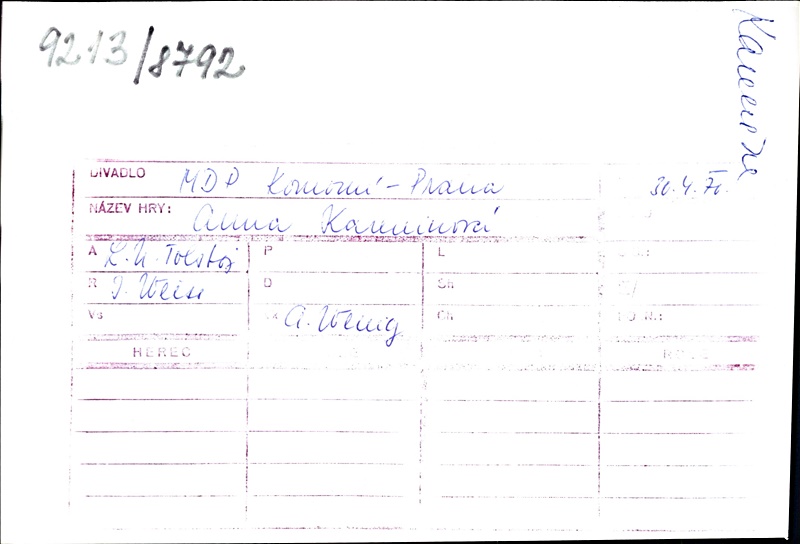 9213/8792
DIVADLO MDP Komorní - Praha 30.4.
NÁZEV HRY: Anna Kareninová
A L. N. Tolstoj P L
R J. Weiss D Sh
Vs A. Wenig Ch
HEREC